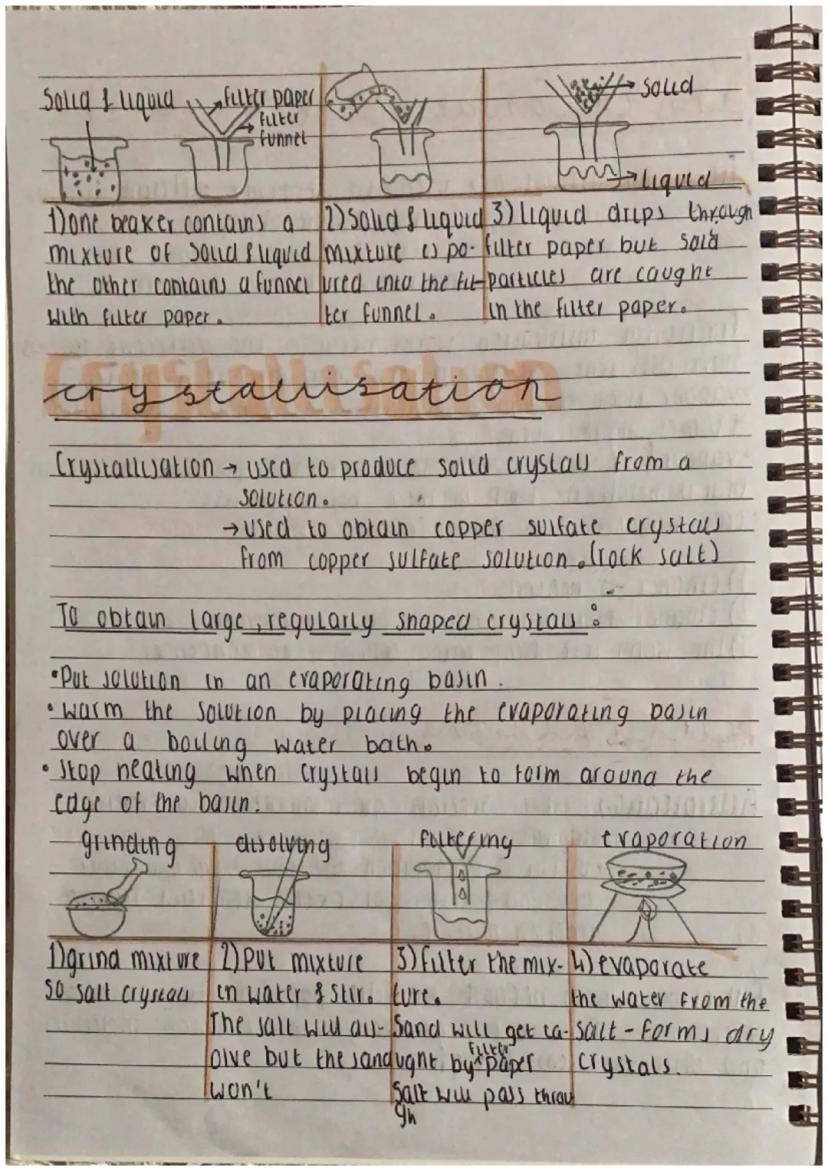 Solid & liquid
filter paper
filter
funnel
solid
liquid
1) one beaker contains a
mixture of solid & liquid
the other contains a funnel
with filter paper.
2) Solid & liquid
mixture is po-
ured into the fil-
ter funnel.
3) liquid drips through
filter paper but solid
particles are caught
in the filter paper.
crystallisation
Crystallisation → used to produce solid crystals from a
solution.
→ used to obtain copper sulfate crystals
from copper sulfate solution. (rock salt)
To obtain large, regularly shaped crystals:
•Put solution in an evaporating basin.
•warm the solution by placing the evaporating basin
over a boiling water bath.
•Stop heating when crystals begin to form around the
edge of the basin.
grinding
disolving
filtering
evaporation
1) grind mixture
so salt crystals
2) Put mixture
in water & stir.
The salt will dis-
olve but the sand
won't
3) filter the mix-
ture.
Sand will get ca-
ught by filter paper
Salt will pass throu
gh
4) evaporate
the water from the
salt - forms dry
crystals.